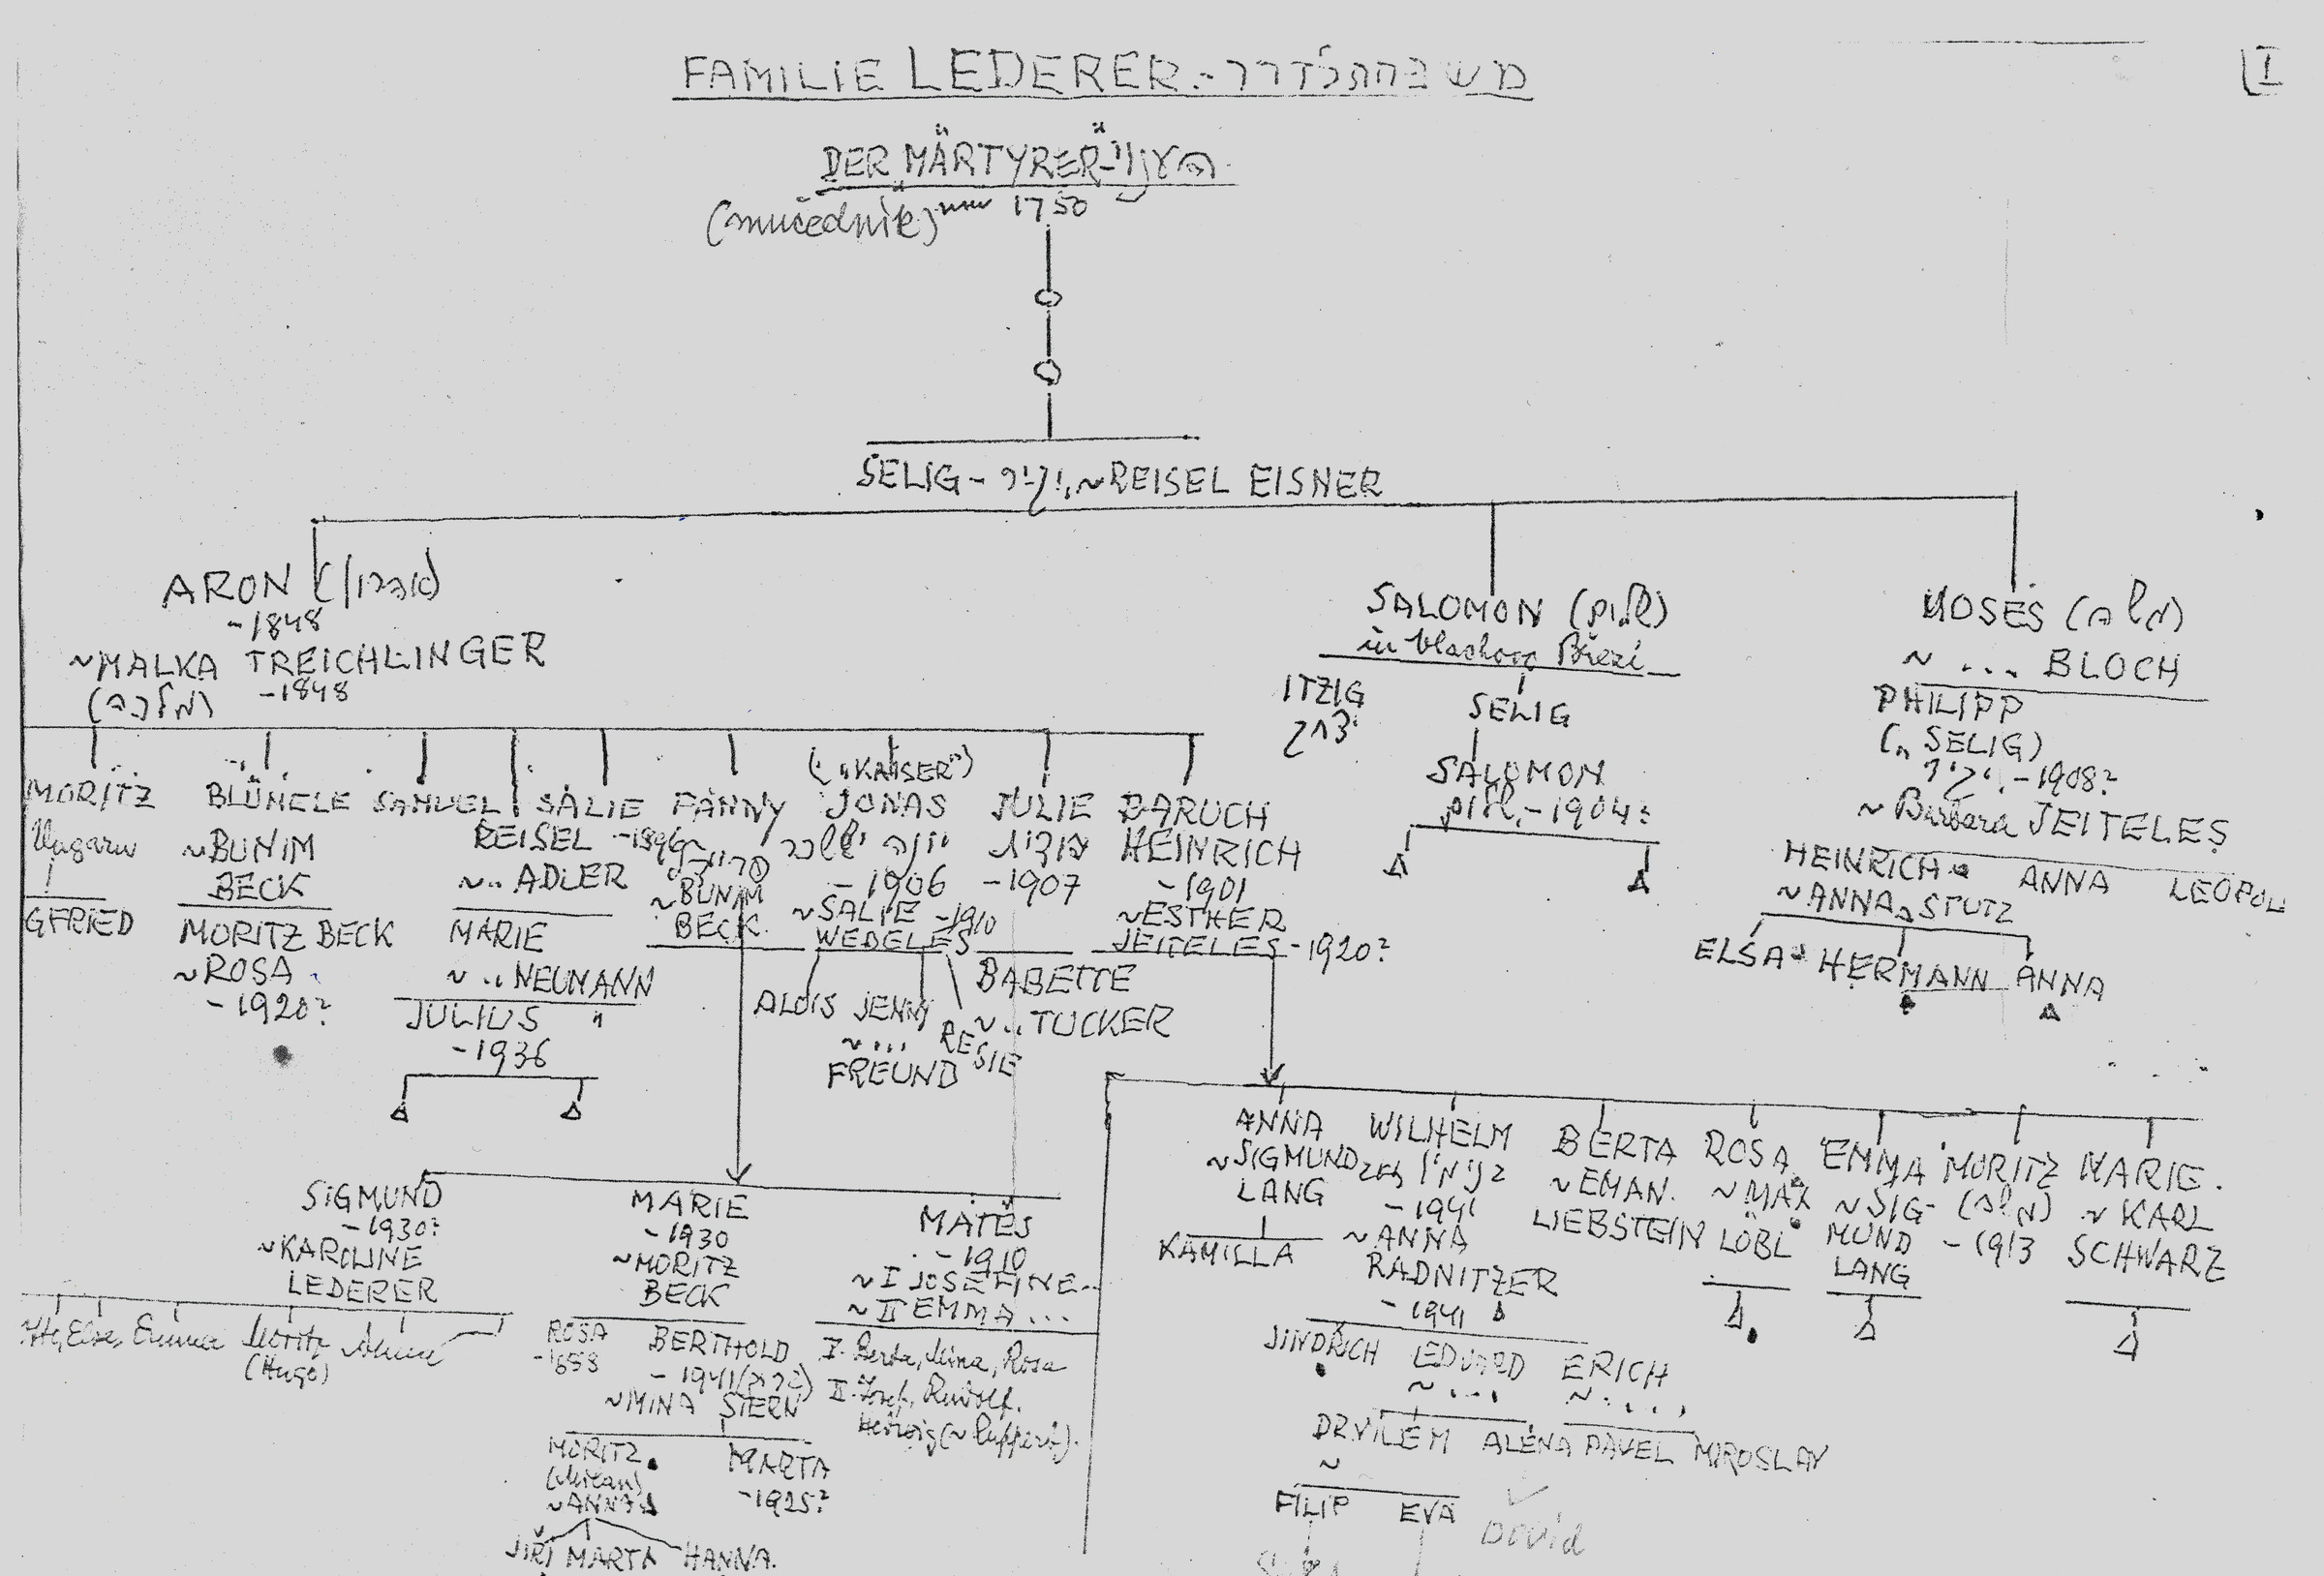 FAMILIE LEDERER -
I
DER MÄRTYRER -
(mučedník) 1750
SELIG - ~ REISEL EISNER
ARON
-1848
~MALKA TREICHLINGER
(מלכה) -1848
SALOMON
in Vlachovo Březí
ITZIG
SELIG
SALOMON
-1904?
MOSES (משה)
~ ... BLOCH
PHILIPP
(" SELIG)
-1908?
~ Barbara JEITELES
HEINRICH ANNA
~ANNA STUTZ
ELSA HERMANN ANNA
MORITZ
Ungarn
GFRIED
BLÜMELE
~BUNIM
BECK
MORITZ BECK
~ROSA
-1920?
SAMUEL
REISEL
~.. ADLER
MARIE
~ .. NEUMANN
JULIUS
-1936
SALIE
FANNY
~BUNIM
BECK.
("KAISER")
JONAS
יונה
-1906
~SALIE -1910
WEDELES
ALOIS JENNY
~... RESIE
FREUND
JULIE
-1907
BABETTE
~..TUCKER
BARUCH
HEINRICH
-1901
~ESTHER
JEITELES -1920?
ANNA
~SIGMUND
LANG
KAMILLA
WILHELM
-1941
~ANNA
RADNITZER
-1941
JINDŘICH EDUARD ERICH
~... ~....
DR.VILÉM ALENA PAVEL MIROSLAV
~
FILIP EVA
David
BERTA
~EMAN.
LIEBSTEIN
ROSA
~MAX
LÖBL
EMMA
~SIG-
MUND
LANG
MORITZ
(משה)
-1913
MARIE.
~ KARL
SCHWARZ
SIGMUND
-1930?
~KAROLINE
LEDERER
Else, Emma Moritz
(Hugo)
MARIE
-1930
~MORITZ
BECK
ROSA
BERTHOLD
-1941
~MINA STERN
MORITZ
(Milan)
~ANNA
MARTA
-1925?
JIŘÍ MARTA HANNA.
MATES
-1910
~I JOSEFINE...
~II EMMA ...
I. Berta, Mina, Rosa
II. Josef, Rudolf,
Hedwig